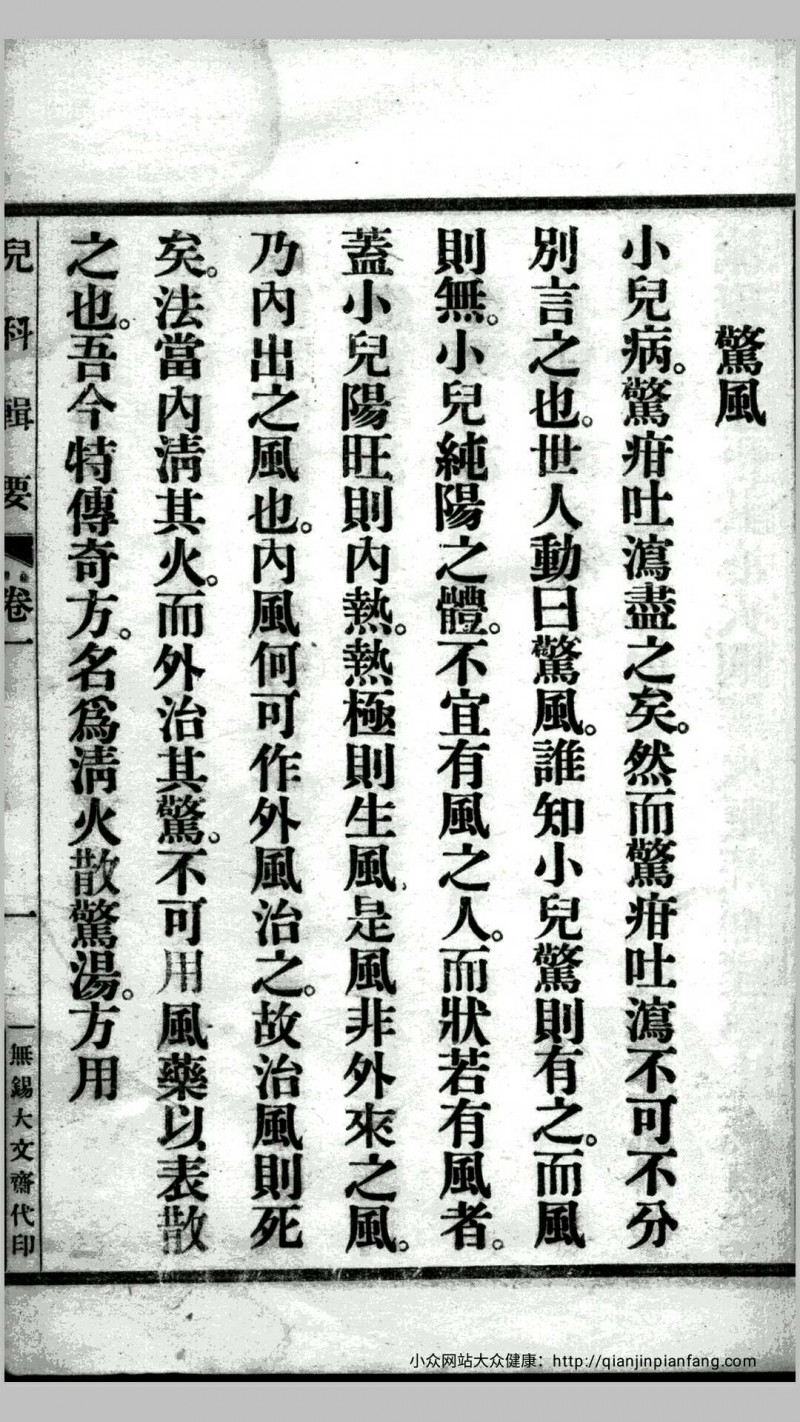 驚風
小兒病。驚疳吐瀉盡之矣。然而驚疳吐瀉不可不分
別言之也。世人動曰驚風。誰知小兒驚則有之。而風
則無。小兒純陽之體。不宜有風之人。而狀若有風者。
蓋小兒陽旺則內熱。熱極則生風。是風非外來之風。
乃內出之風也。內風何可作外風治之。故治風則死
矣。法當內淸其火。而外治其驚。不可用風藥以表散
之也。吾今特傳奇方。名爲淸火散驚湯。方用
兒科輯要 卷一 一 無錫大文齋代印
小众网站大众健康：http://qianjinpianfang.com